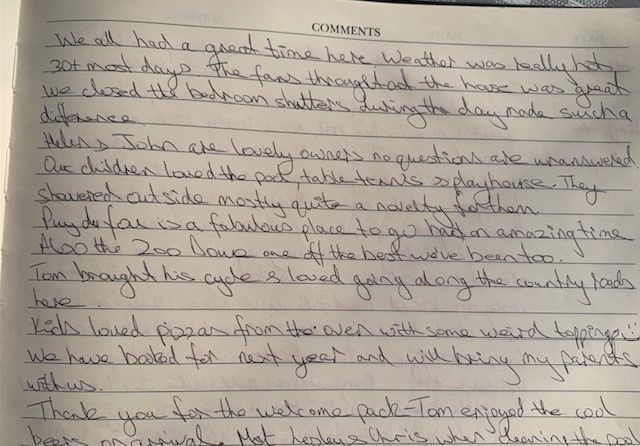 COMMENTS
We all had a great time here weather was really hot,
30+ most days. The fans throughtout the house was great
We closed the bedroom shutters during the day made such a
difference.
Helen & John are lovely owners no questions are unanswered
Our children loved the pool, table tennis & playhouse. They
showered outside mostly quite a novelty for them.
Puy du fou is a fabulous place to go had an amazing time
Also the Zoo one off the best we've been too.
Tom brought his cycle & loved going along the country roads
here.
Kids loved pizzas from the oven with some weird toppings :)
We have booked for next year and will bring my parents
with us.
Thank you for the welcome pack - Tom enjoyed the cool
beers on arrival. Met Lesley & Chris when cleaning the pool